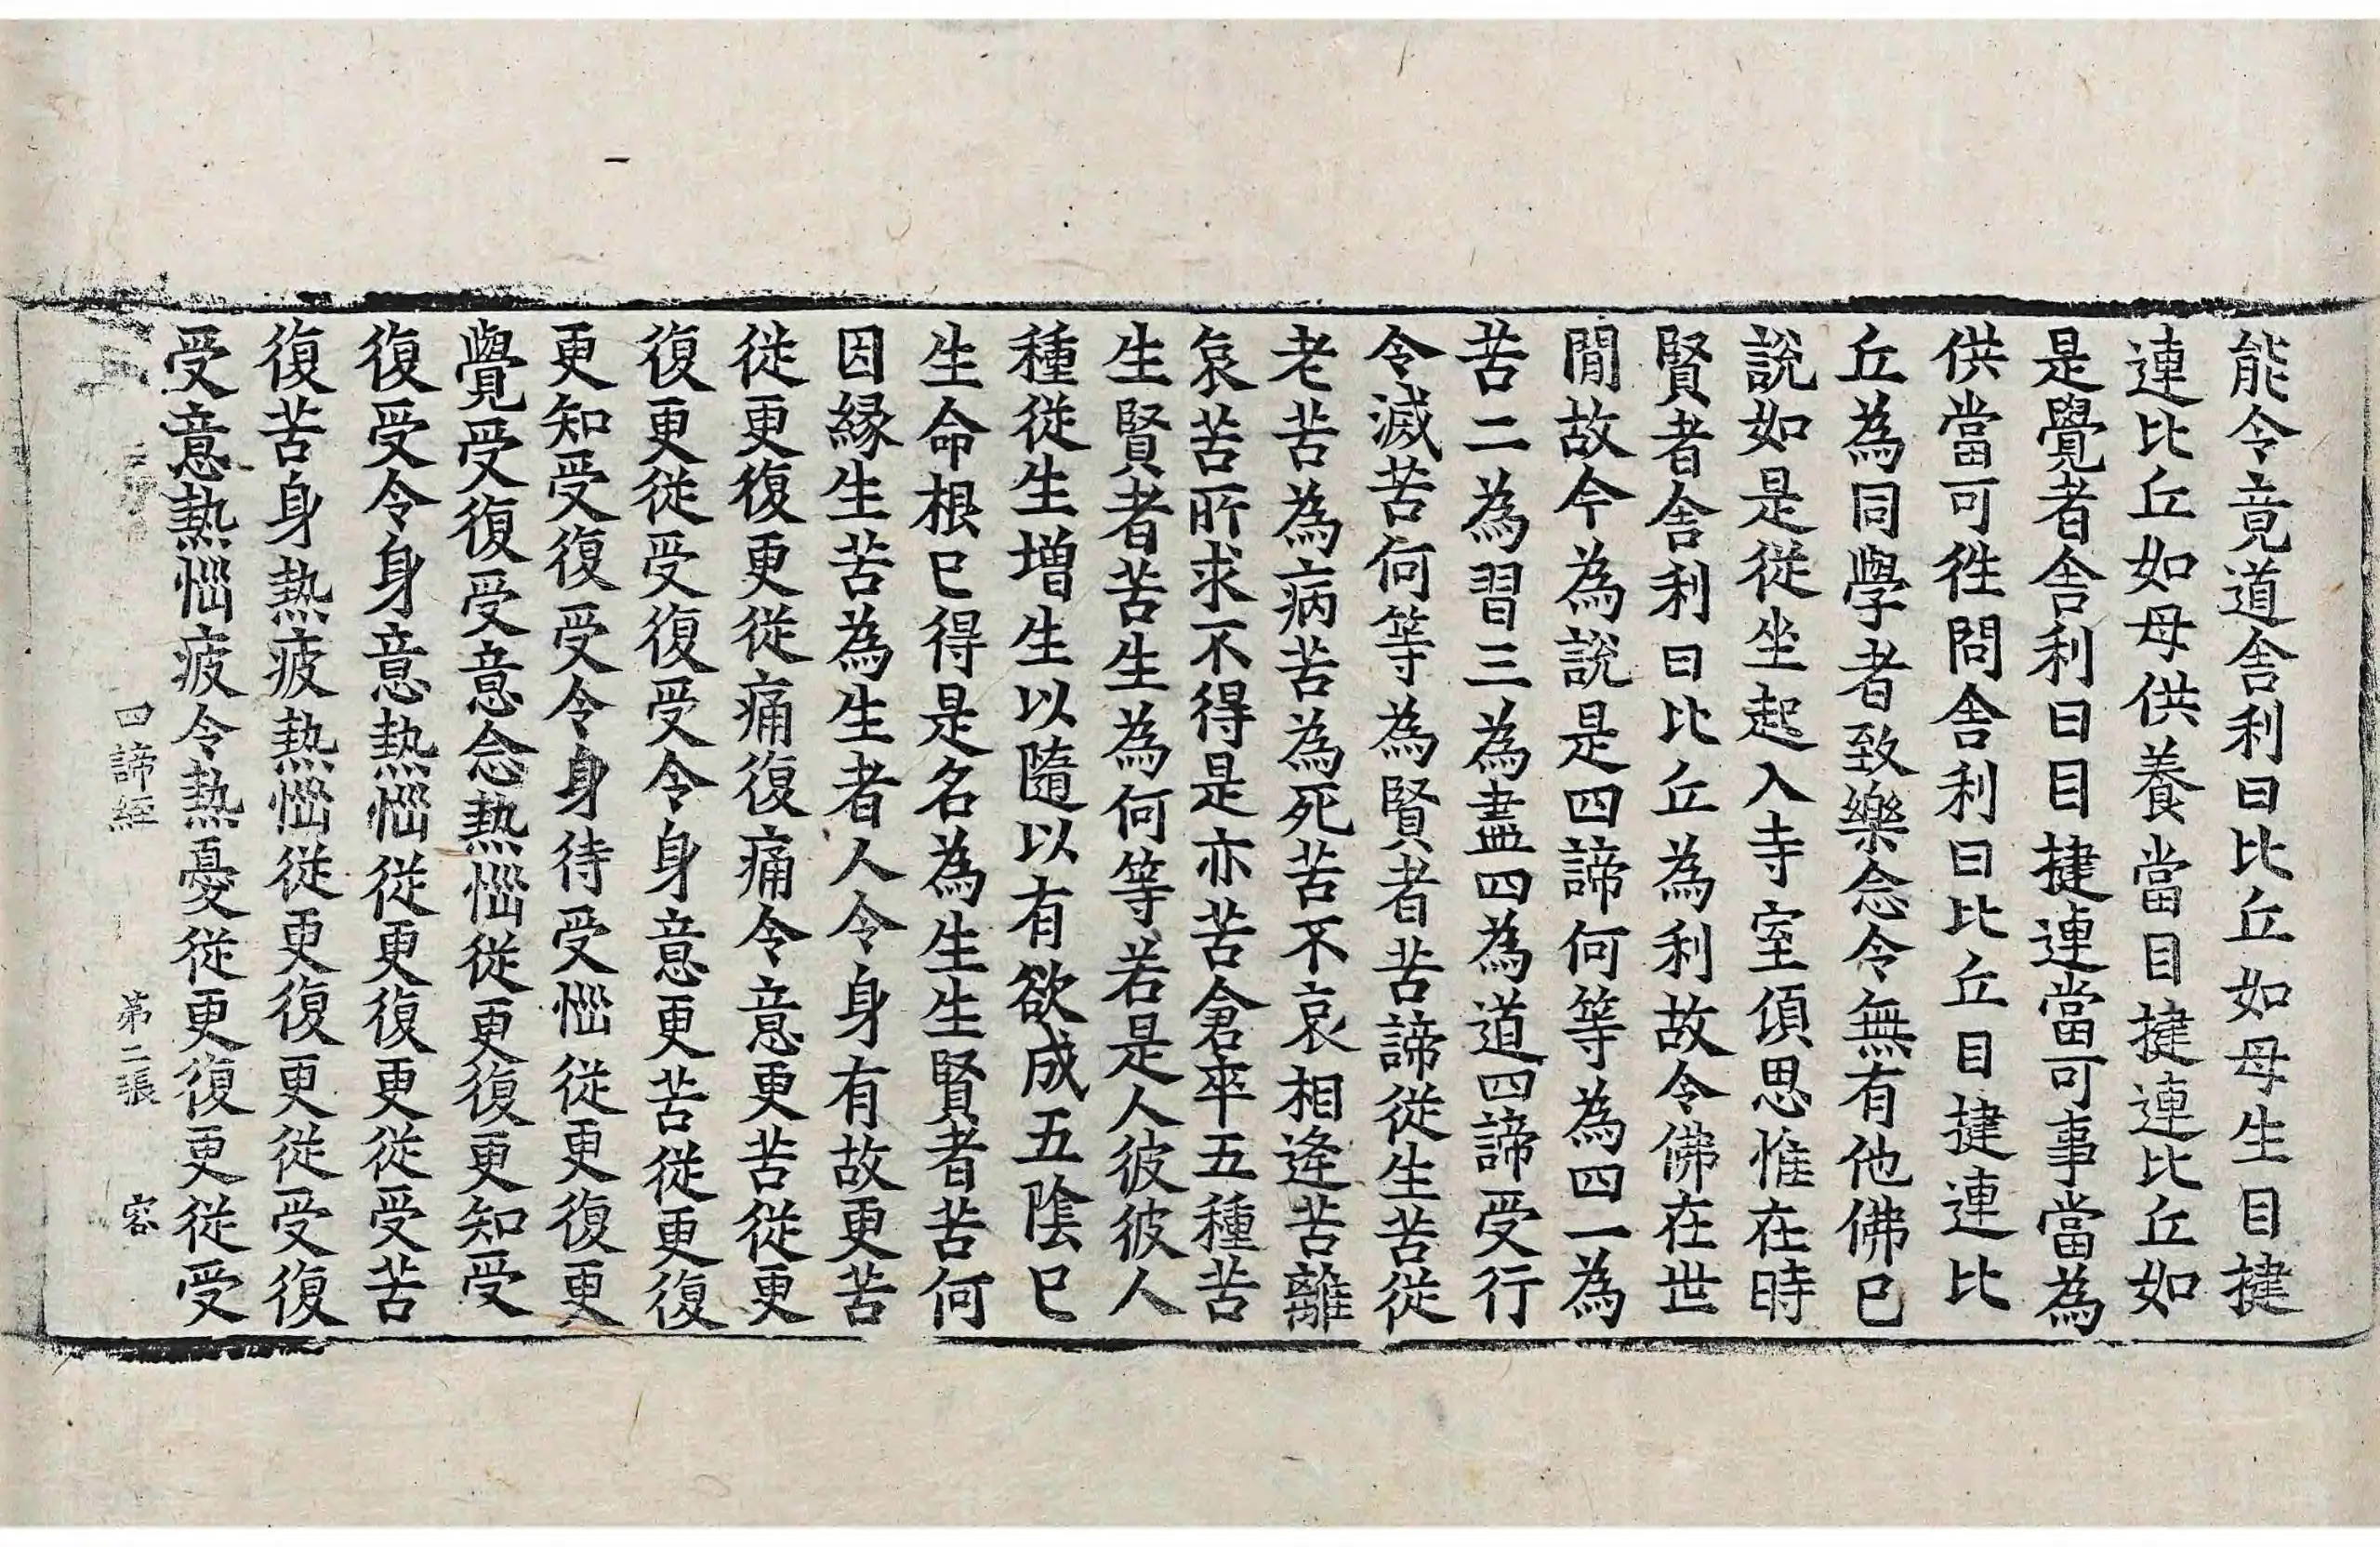 能令竟道舍利曰比丘如母生目揵
連比丘如母供養當目揵連比丘如
是覺者舍利曰目揵連當可事當為
供當可徃問舍利曰比丘目揵連比
丘為同學者致樂念令無有他佛已
說如是從坐起入寺室傾思惟在時
賢者舍利曰比丘為利故令佛在世
閒故今為說是四諦何等為四一為
苦二為習三為盡四為道四諦受行
令滅苦何等為賢者苦諦從生苦從
老苦為病苦為死苦不哀相逢苦離
哀苦所求不得是亦苦倉卒五種苦
生賢者苦生為何等若是人彼彼人
種從生增生以隨以有欲成五陰已
生命根已得是名為生生賢者苦何
因緣生苦為生者人令身有故更苦
從更復更從痛復痛令意更苦從更
復更從受復受令身意更苦從更復
更知受復受令身待受惱從更復更
覺受復受意念熱惱從更復更知受
復受令身意熱惱從更復更從受苦
復苦身熱疲熱惱從更復更從受復
受意熱惱疲令熱憂從更復更從受
四諦經 第二張 容